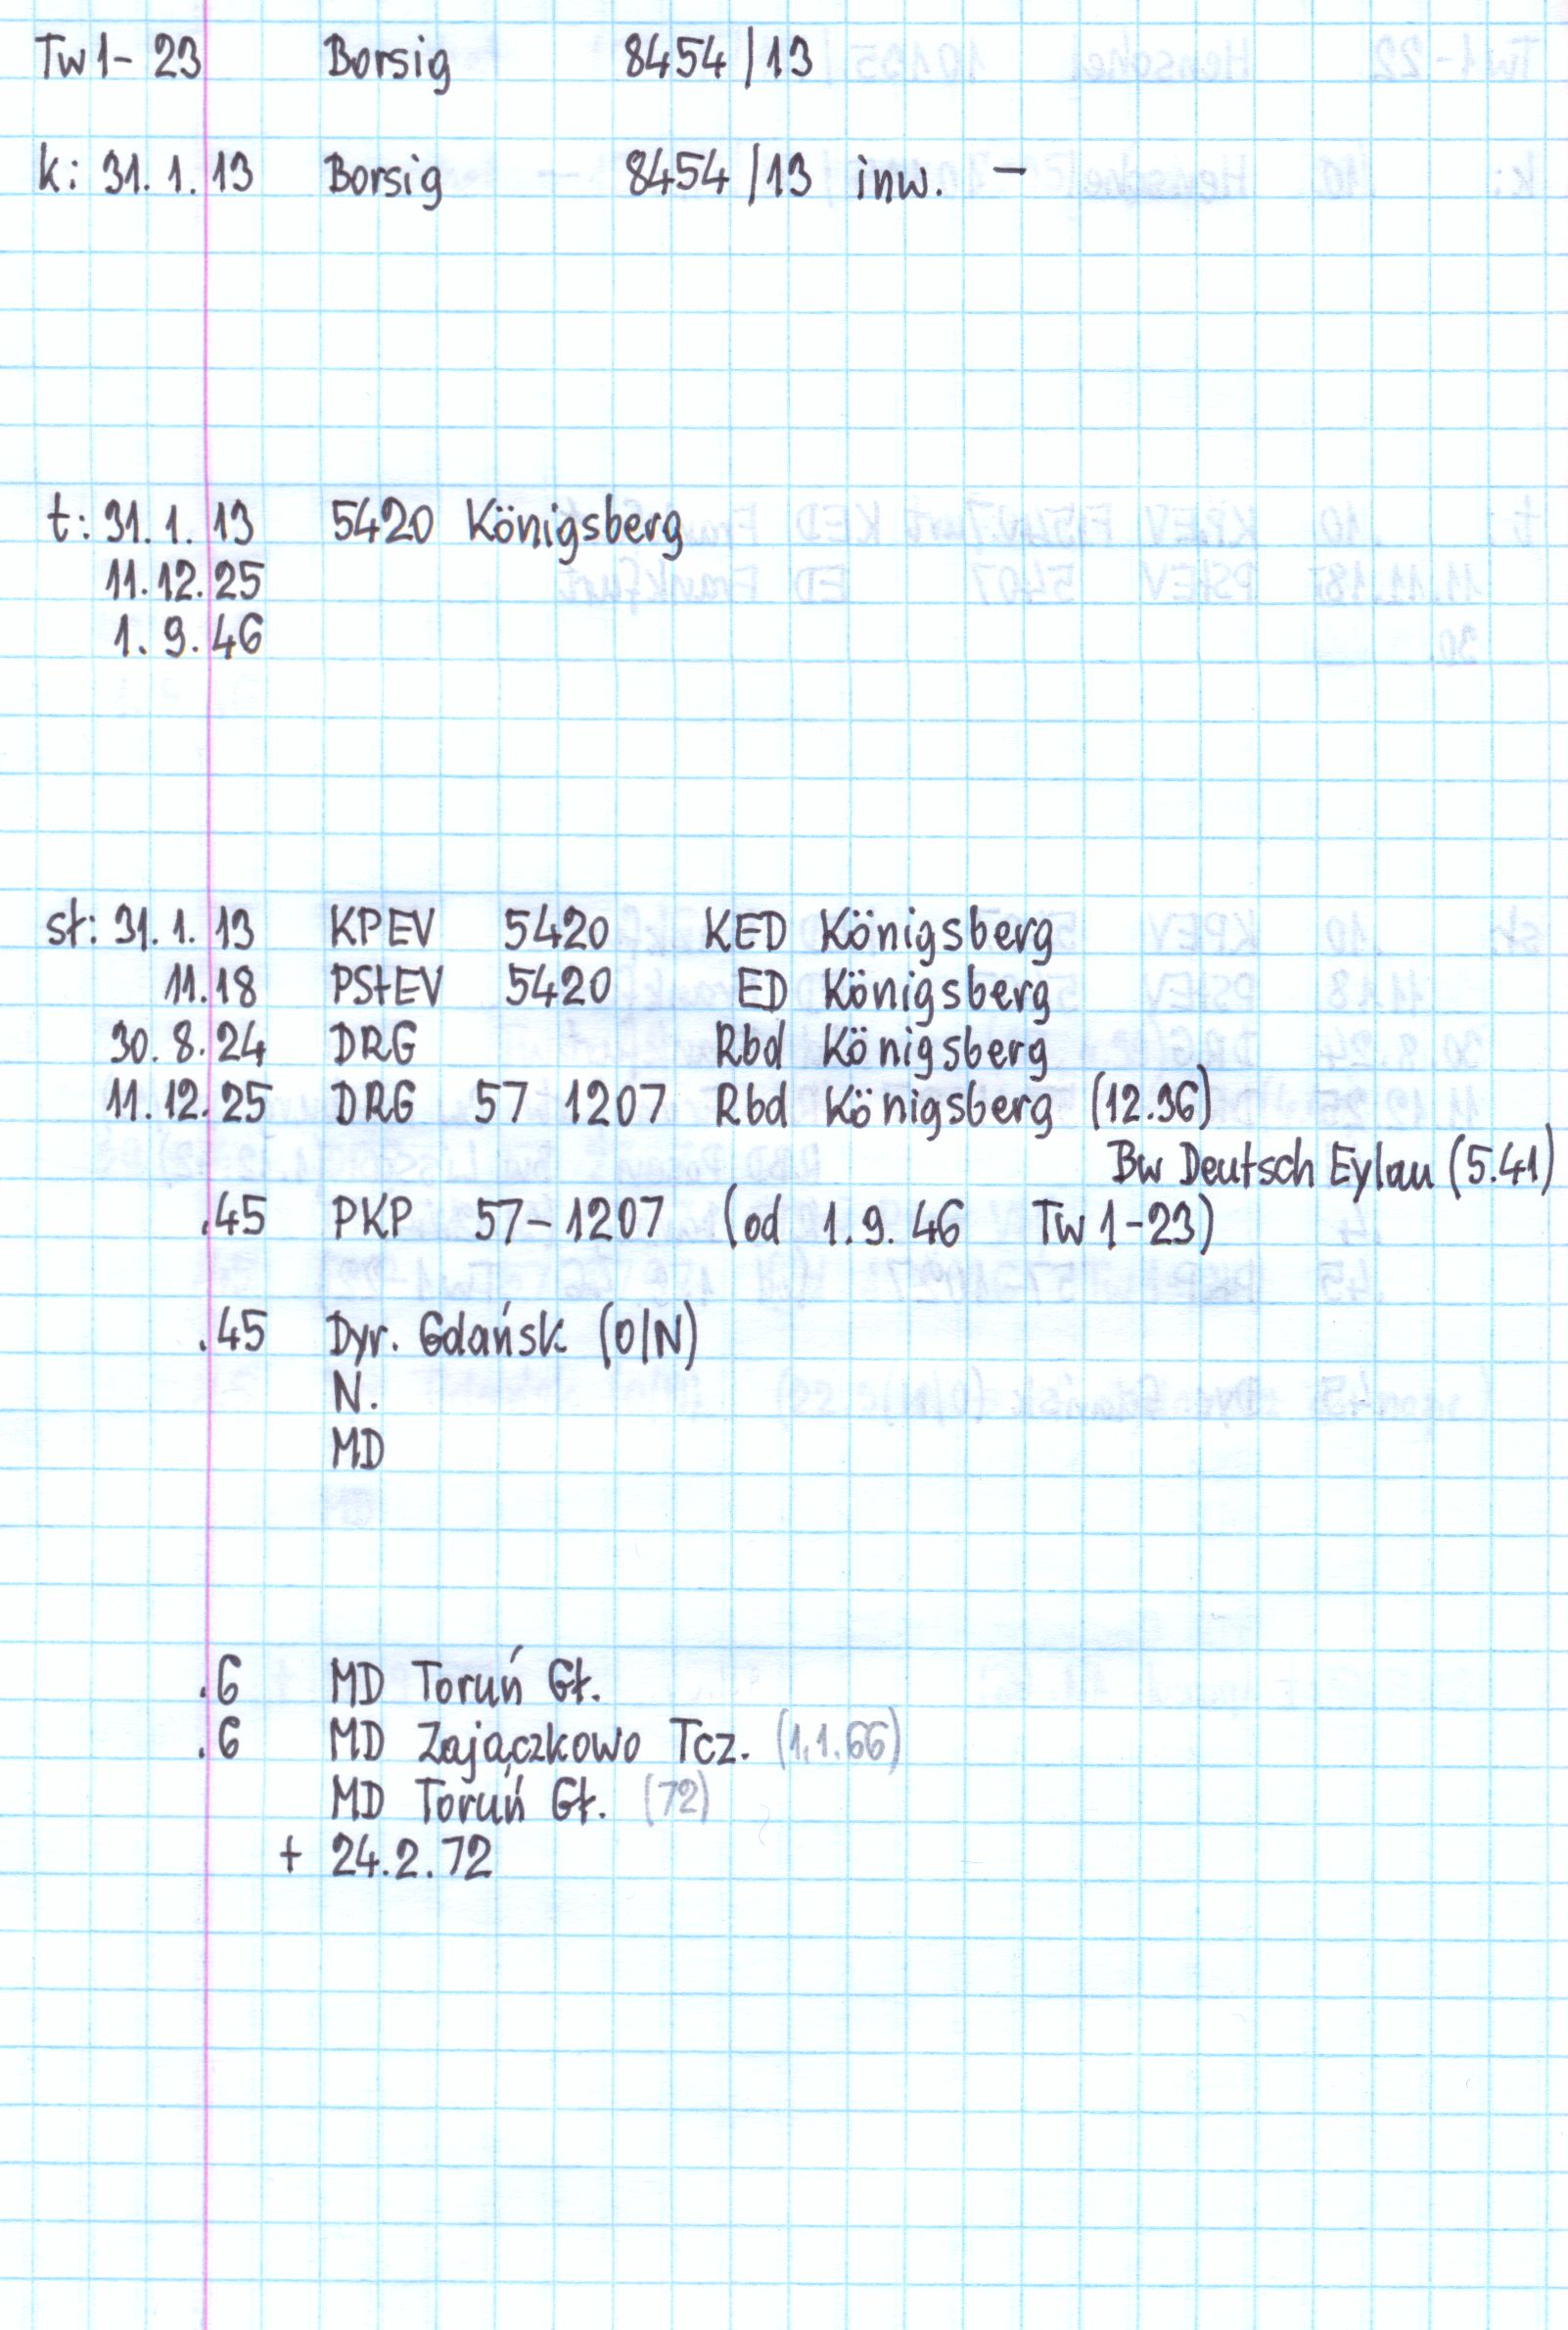 Tw1-23 Borsig 8454/13
k: 31.1.13 Borsig 8454/13 inw. -
t: 31.1.13 5420 Königsberg
11.12.25
1.9.46
st: 31.1.13 KPEV 5420 KED Königsberg
11.18 PStEV 5420 ED Königsberg
30.8.24 DRG Rbd Königsberg
11.12.25 DRG 57 1207 Rbd Königsberg (12.36)
Bw Deutsch Eylau (5.41)
.45 PKP 57-1207 (od 1.9.46 Tw1-23)
.45 Dyr. Gdańsk (O/N)
N.
MD
.6 MD Toruń Gł.
.6 MD Zajączkowo Tcz. (1.1.66)
MD Toruń Gł. (72)
+ 24.2.72